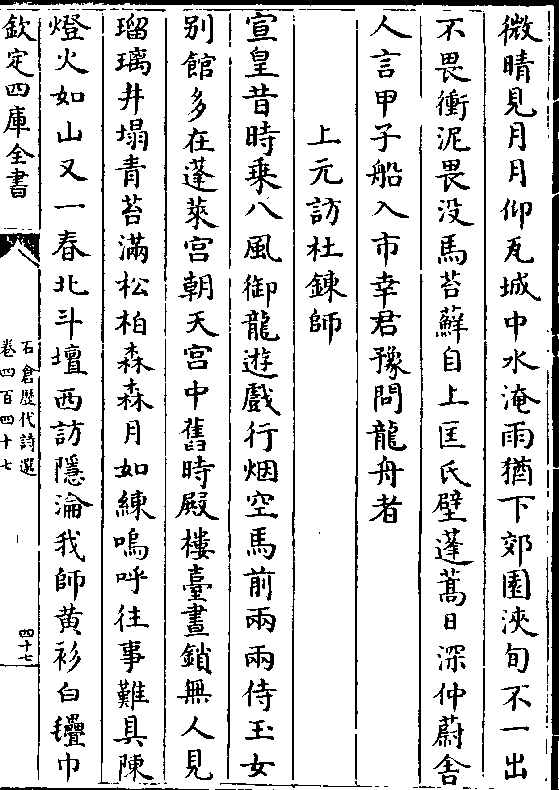 微晴見月月仰瓦城中水淹雨猶下郊園浹旬不一出
不畏衝泥畏没馬苔蘚自上匡氏壁蓬蒿日深仲蔚舍
人言甲子船入市幸君豫問龍舟者
上元訪杜鍊師
宣皇昔時乗八風御龍遊戲行烟空馬前兩兩侍玉女
别館多在蓬萊宫朝天宫中舊時殿樓臺晝鎖無人見
瑠璃井塌青苔滿松柏森森月如練嗚呼往事難具陳
燈火如山又一春北斗壇西訪隱淪我師黄衫白㲲巾
欽定四庫全書
石倉歴代詩選
卷四百四十七
四十七